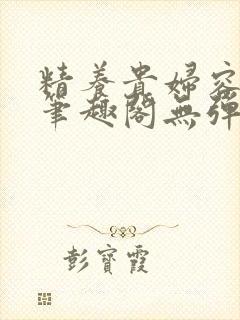 精養貴婦容
筆趣閣無彈
彭寶霞